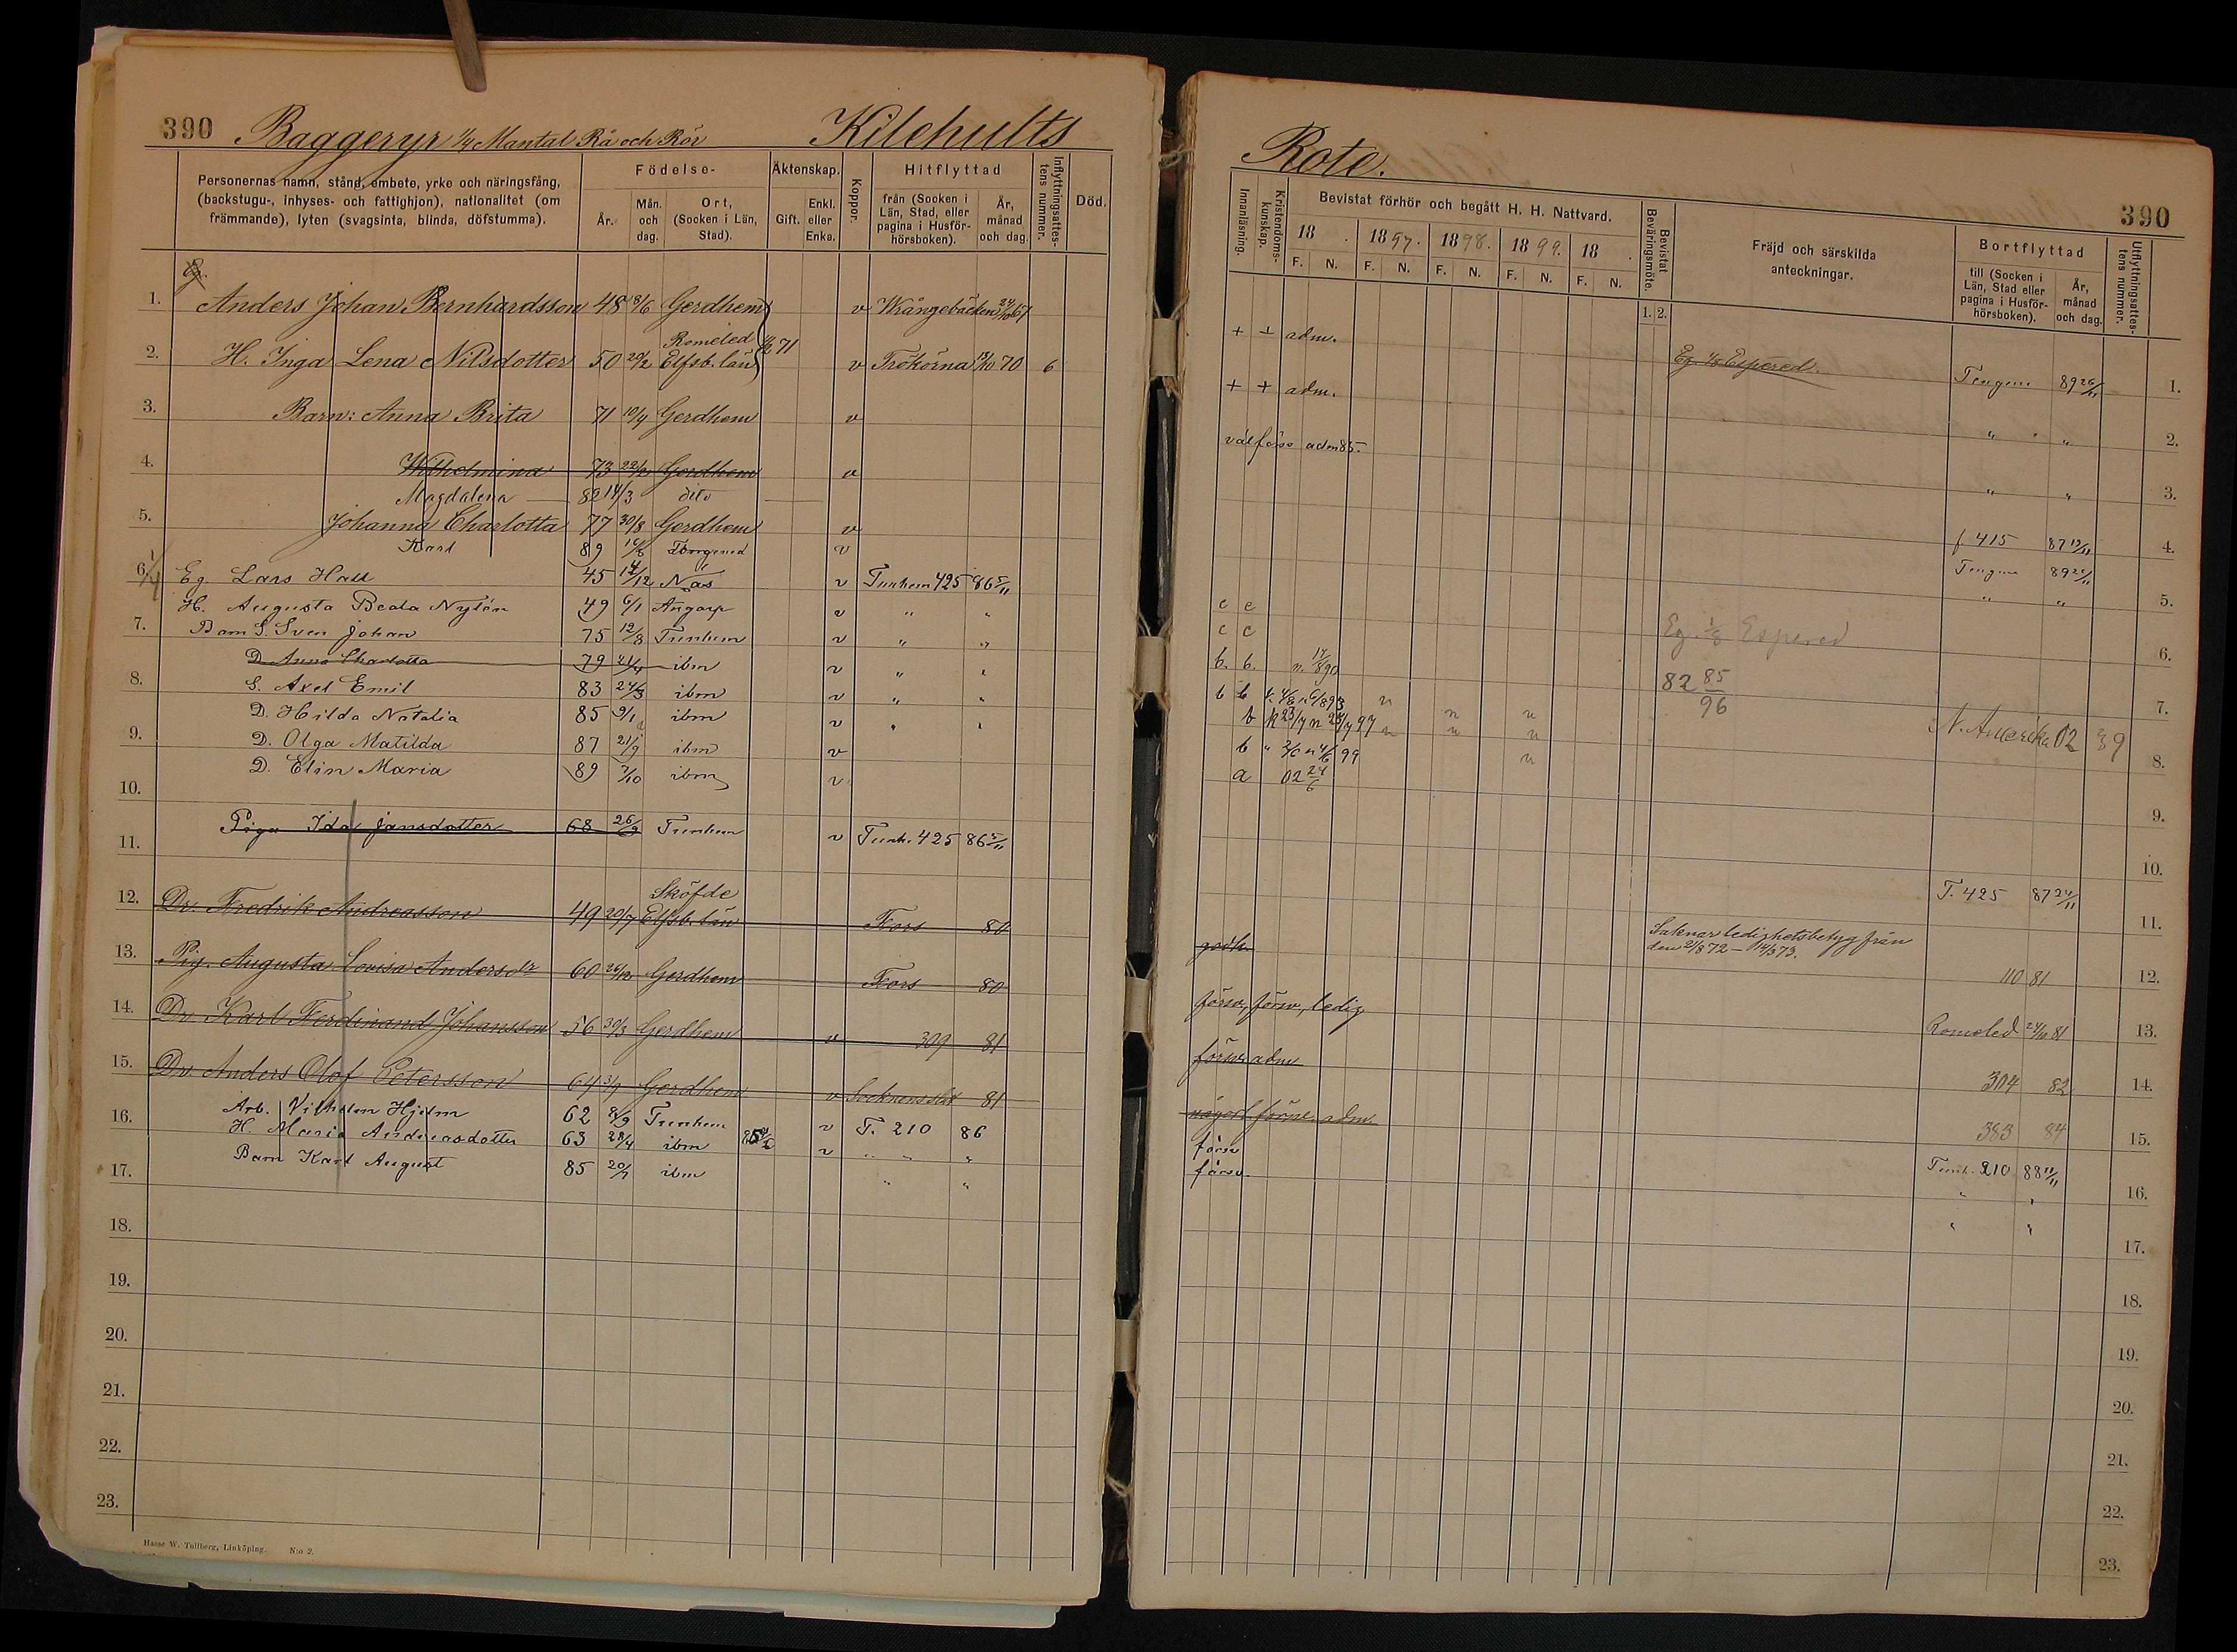 390 Baggeryr 1/4 Mantal Rå och Rör Kilehults
Personernas namn, stånd, embete, yrke och näringsfång, (backstugu-, inhyses- och fattighjon), nationalitet (om främmande), lyten (svagsinta, blinda, döfstumma).
Födelse-
År.
Mån. och dag.
Ort, (Socken i Län, Stad).
Äktenskap.
Gift.
Enkl. eller Enka.
Koppor.
Hitflyttad
från (Socken i Län, Stad, eller pagina i Husförhörsboken).
År, månad och dag.
Inflyttningsattestens nummer.
Död.
Eg.
1. Anders Johan Bernhardsson 48 18/6 Gerdhem v Wrångebäcken 24/10 67
Romeled
2. H. Inga Lena Nilsdotter 50 20/2 Elfsb. län 71 v Trökörna 70 6
3. Barn: Anna Brita 71 10/4 Gerdhem v
4. Wilhelmina 73 22/2 Gerdhem v
Magdalena 82 14/3 dito
5. Johanna Charlotta 77 30/8 Gerdhem v
Karl 89 16/8 v
6. 1/4 Eg. Lars Hall 45 14/12 Nås v Tunhem 425 86 5/11
H. Augusta Beata Nylén 49 6/1 Angarp v " "
7. Barn S. Sven Johan 75 12/8 Tunhem v " "
D. Anna Charlotta 79 21/4 ibm v " "
8. S. Axel Emil 83 24/3 ibm v " "
D. Hilda Natalia 85 9/1 ibm v " "
9. D. Olga Matilda 87 21/9 ibm v
D. Elin Maria 89 7/10 ibm v
10.
Piga Ida Jansdotter 68 26/9 Tunhem v Tunh. 425 86 5/11
11.
Sköfde
12. Dr. Fredrik Andreasson 49 20/7 Elfsb. län Fors 80
13. Pig. Augusta Lovisa Andersdr 60 26/12 Gerdhem Fors 80
14. Dr. Karl Ferdinand Johansson 56 30/3 Gerdhem v 309 81
15. Dr. Anders Olof Petersson 64 3/7 Gerdhem v 81
Arb. Vilhelm Hjelm 62 8/9 Tunhem v T. 210 86
16. H. Maria Andreasdotter 63 28/4 ibm v " " "
Barn Karl August 85 20/7 ibm " "
17.
18.
19.
20.
21.
22.
23.
Hasse W. Tullberg, Linköping. N:o 2.
Rote.
390
Innanläsning.
Kristendomskunskap.
Bevistat förhör och begått H. H. Nattvard.
18 . 1897. 1898. 1899. 18 .
F. N. F. N. F. N. F. N. F. N.
Bevistat Beväringsmöte.
1. 2.
Fräjd och särskilda anteckningar.
Bortflyttad
till (Socken i Län, Stad eller pagina i Husförhörsboken).
År, månad och dag.
Utflyttningsattestens nummer.
+ + adm. Eg. 1/8 Espered Tengene 89 26/11 1.
+ + adm. " " 2.
väl försv adm 85. " " 3.
f. 415 87 12/11 4.
Tengene 89 26/11
" " 5.
c c Eg. 1/8 Espered
c c 6.
b. b. n. 17/8 90 82 85/96
b b n 7.
b n n n N. Amerika 02 39
b " 99 n 8.
a 02 24/6
9.
10.
T. 425 87 24/11
11.
godk. Saknar ledighetsbetyg från
den 21/8 72 - 14/3 73. 110 81 12.
försv. försv. ledig. Romeled 24/10 81 13.
försv. adm 304 82 14.
någorl. försv. adm 383 84 15.
försv Tunh. 210 88 11/11
försv. " " 16.
" "
17.
18.
19.
20.
21.
22.
23.